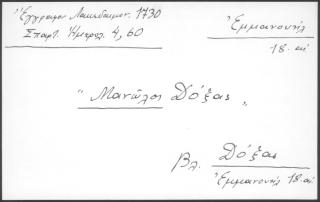 Ἔγγραφον Λακεδαιμον. 1730
Σπαρτ. Ἡμερολ. 4, 60
Ἐμμανουήλ
18. αἰ
"Μανῶλος Δόξας"
Βλ. Δόξας
Ἐμμανουήλ 18. αἰ.